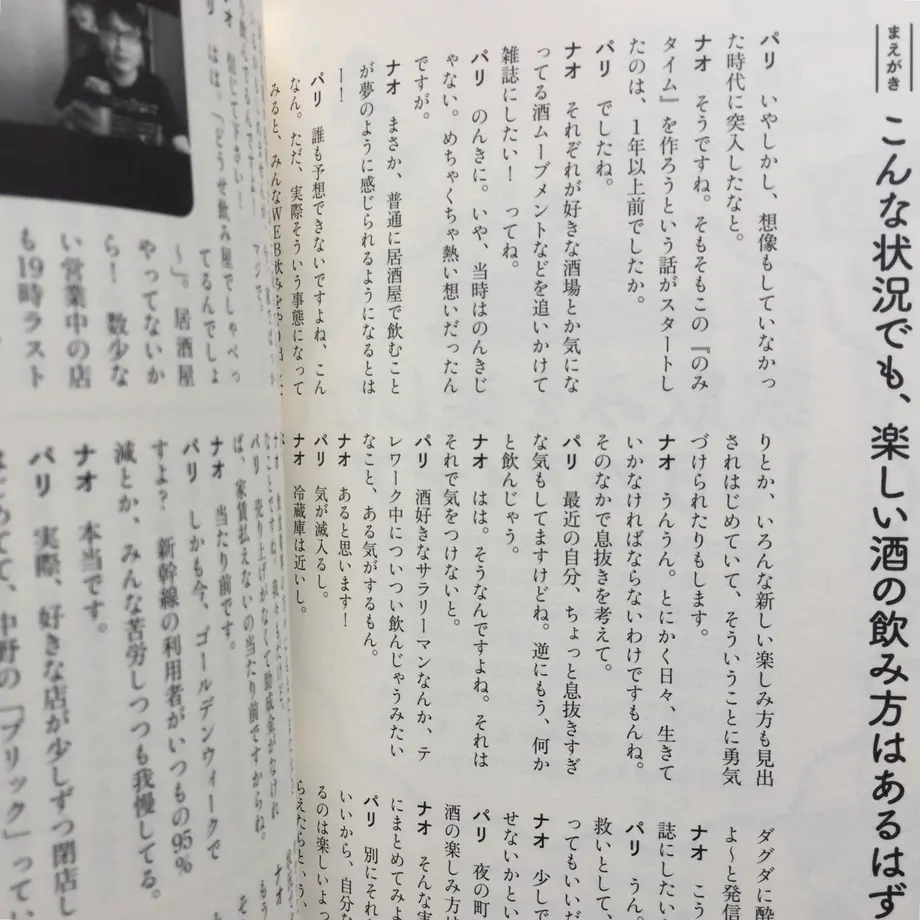 まえがき
こんな状況でも、楽しい酒の飲み方はあるはず
パリ いやしかし、想像もしていなかっ
た時代に突入したなと。
ナオ そうですね。そもそもこの『のみ
タイム』を作ろうという話がスタートし
たのは、1年以上前でしたか。
パリ でしたね。
ナオ それぞれが好きな酒場とか気にな
ってる酒ムーブメントなどを追いかけて
雑誌にしたい! ってね。
パリ のんきに。いや、当時はのんきじ
ゃない。めちゃくちゃ熱い想いだったん
ですが。
ナオ まさか、普通に居酒屋で飲むこと
が夢のように感じられるようになるとは
ー!
パリ 誰も予想できないですよね、こん
なん。ただ、実際そういう事態になって
みると、みんなWEB飲みを
りとか、いろんな新しい楽しみ方も見出
されはじめていて、そういうことに勇気
づけられたりもします。
ナオ うんうん。とにかく日々、生きて
いかなければならないわけですもんね。
そのなかで息抜きを考えて。
パリ 最近の自分、ちょっと息抜きすぎ
な気もしてますけどね。逆にもう、何か
と飲んじゃう。
ナオ はは。そうなんですよね。それは
それで気をつけないと。
パリ 酒好きなサラリーマンなんか、テ
レワーク中についつい飲んじゃうみたい
なこと、ある気がするもん。
ナオ あると思います!
パリ 気が滅入るし。
ナオ 冷蔵庫は近いし。
ダグダに酔
よ〜と発信
ナオ こう
誌にしたい
パリ うん。
救いとして、
ってもいいだ
ナオ 少しで
せないかとい
パリ 夜の町
酒の楽しみ方は
ナオ そんな実
にまとめてみよ
パリ 別にそれ
いいから、自分な
るのは楽しいよっ
らえたらという、
はは。「どうせ飲み屋でしゃべっ
てるんでしょ
〜」。居酒屋
やってないか
ら! 数少な
い営業中の店
も19時ラスト
パリ 売り上げがなくて助成金がなけれ
ば、家賃払えないの当たり前ですからね。
ナオ 当たり前です。
パリ しかも今、ゴールデンウィークで
すよ? 新幹線の利用者がいつもの95%
減とか、みんな苦労しつつも我慢してる。
ナオ 本当です。
パリ 実際、好きな店が少しずつ閉店し
はじめてて、中野の「ブリック」ってい